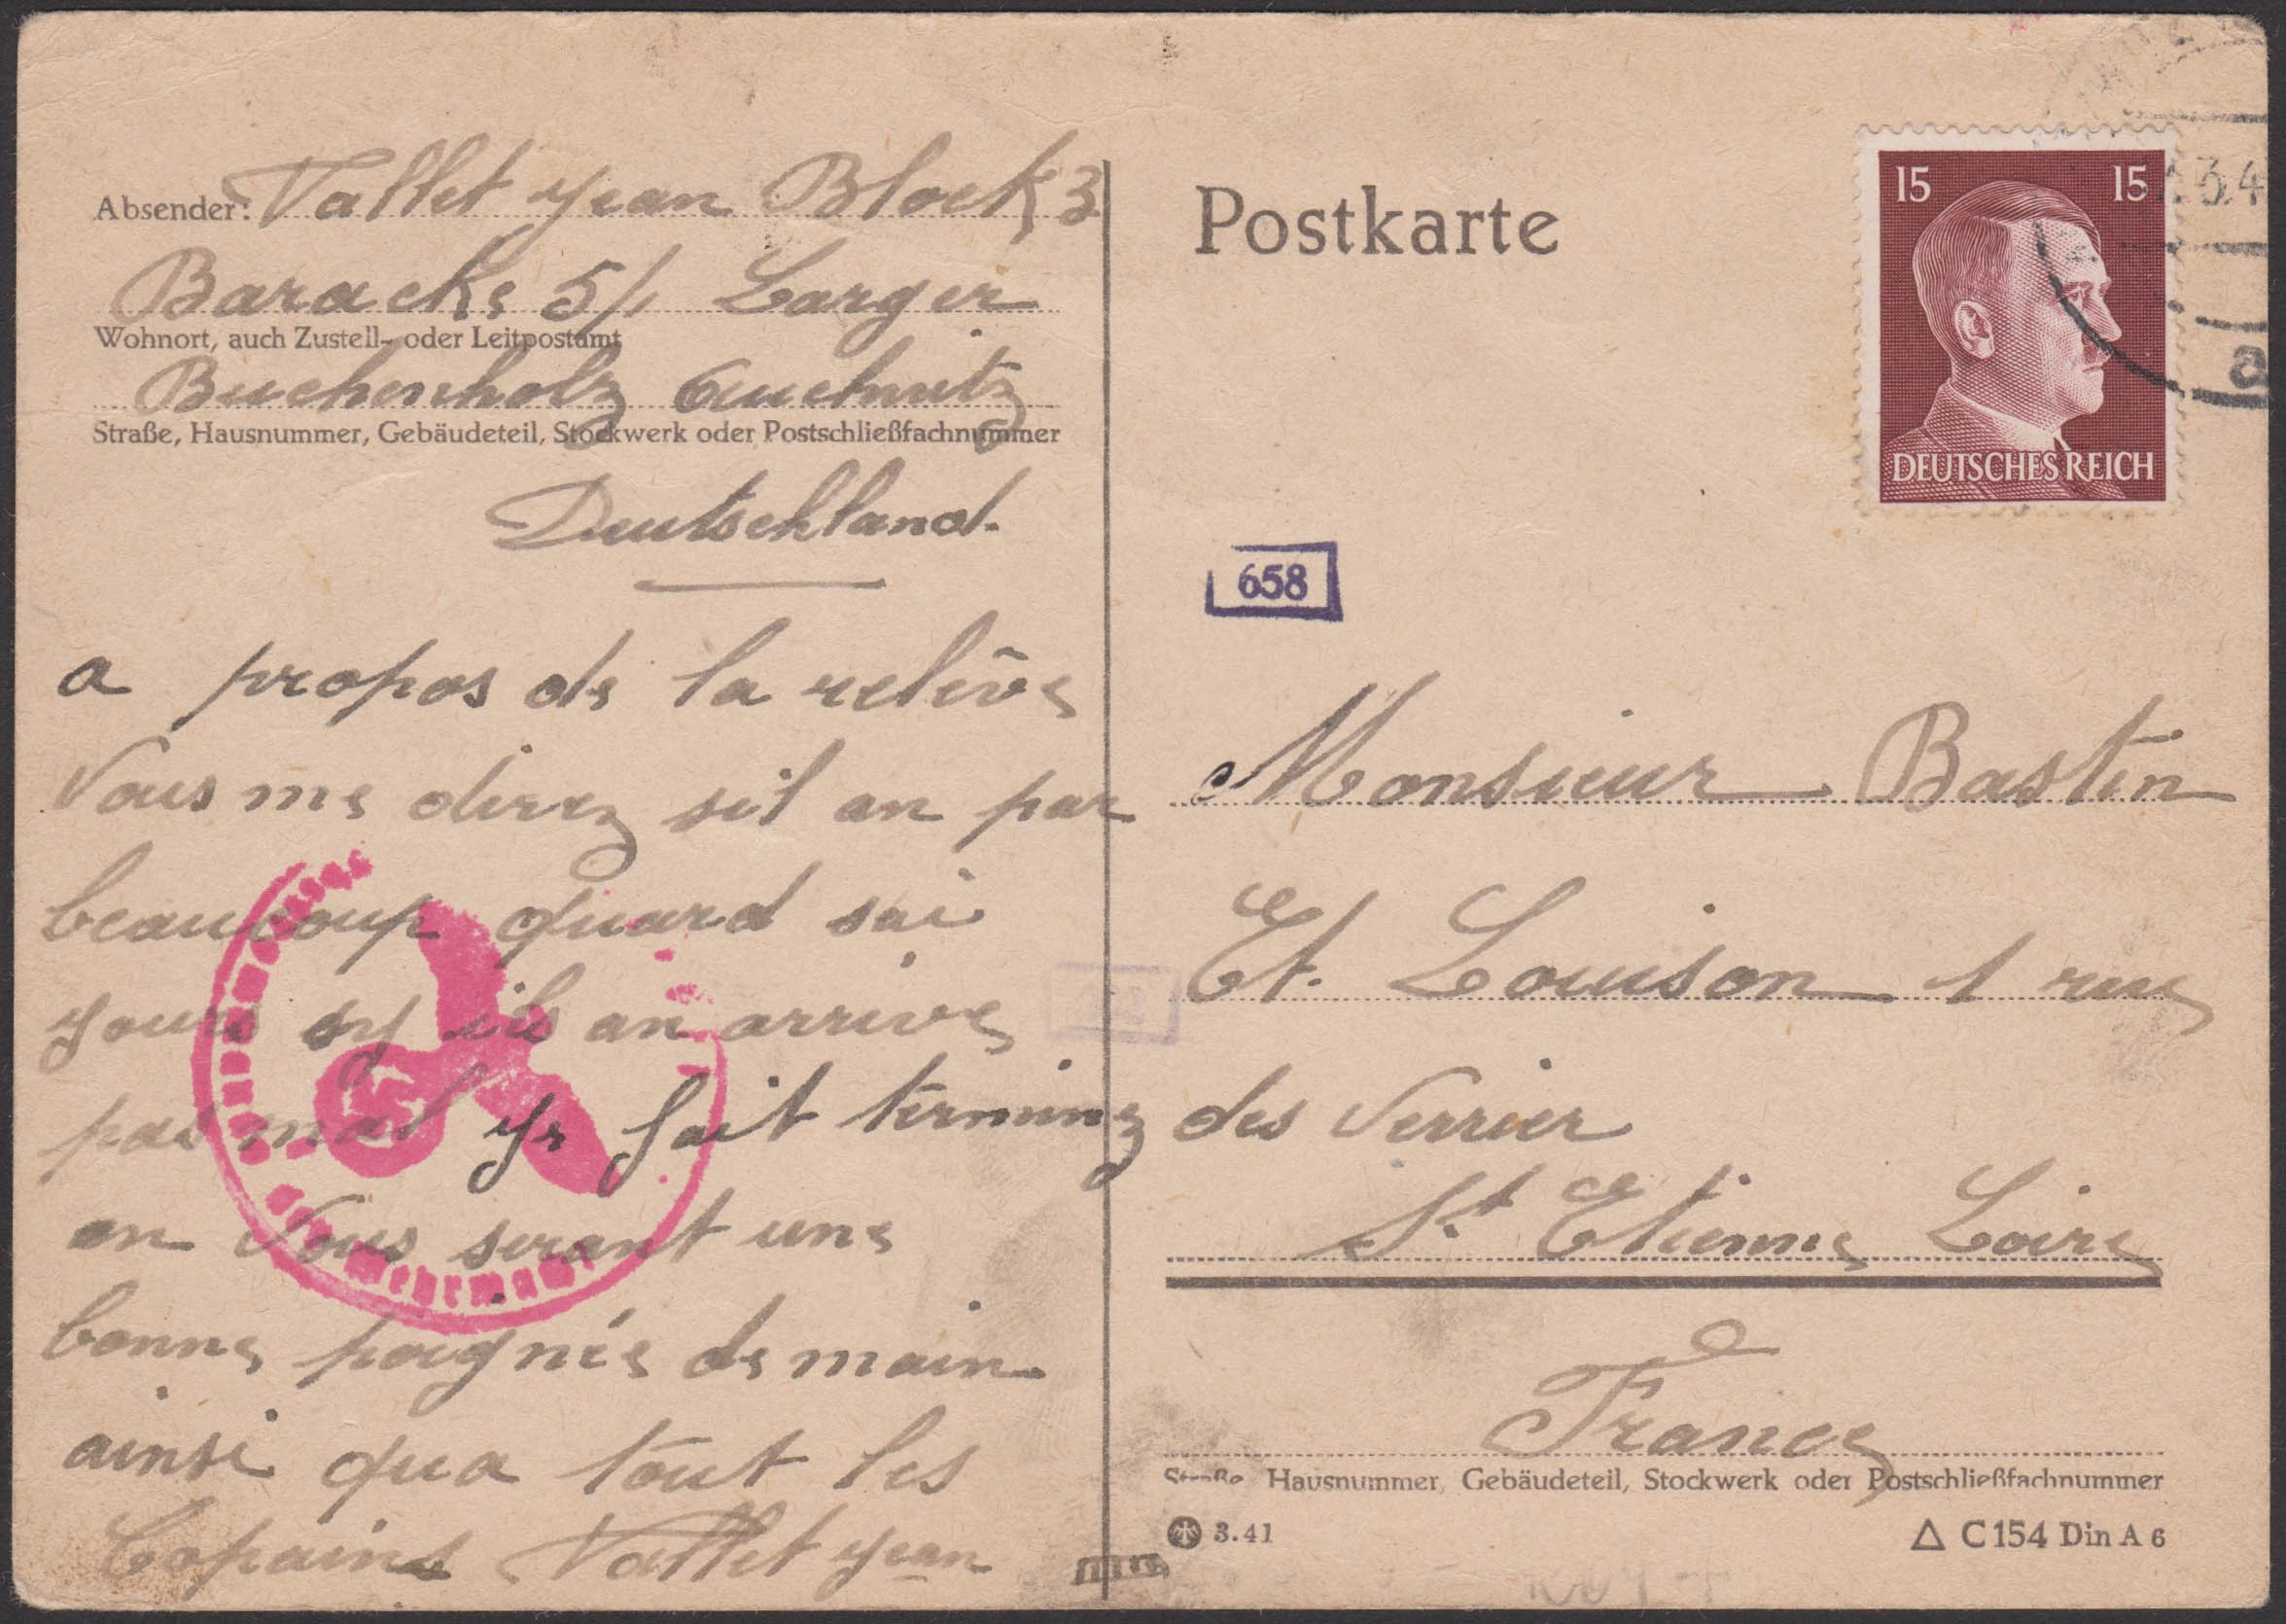 Absender: Vallet Jean Block 3
Baracke 5/1 Larger
Wohnort, auch Zustell- oder Leitpostamt
Buchenholz
Straße, Hausnummer, Gebäudeteil, Stockwerk oder Postschließfachnummer
Deutschland.
a propos de la relève
Vous me direz sil an par
beaucoup quand sai
jours sy ils an arrive
pas mal je fait terminz
en Vous serant une
bonne poignée de main
ainsi qua tout les
Copains Vallet Jean
der Wehrmacht
Postkarte
15 15
DEUTSCHES REICH
3.4
a
658
Monsieur Bastin
Et. Louison 1 rue
des Verrier
St Etienne Loire
France
Straße Hausnummer, Gebäudeteil, Stockwerk oder Postschließfachnummer
3.41
C 154 Din A 6